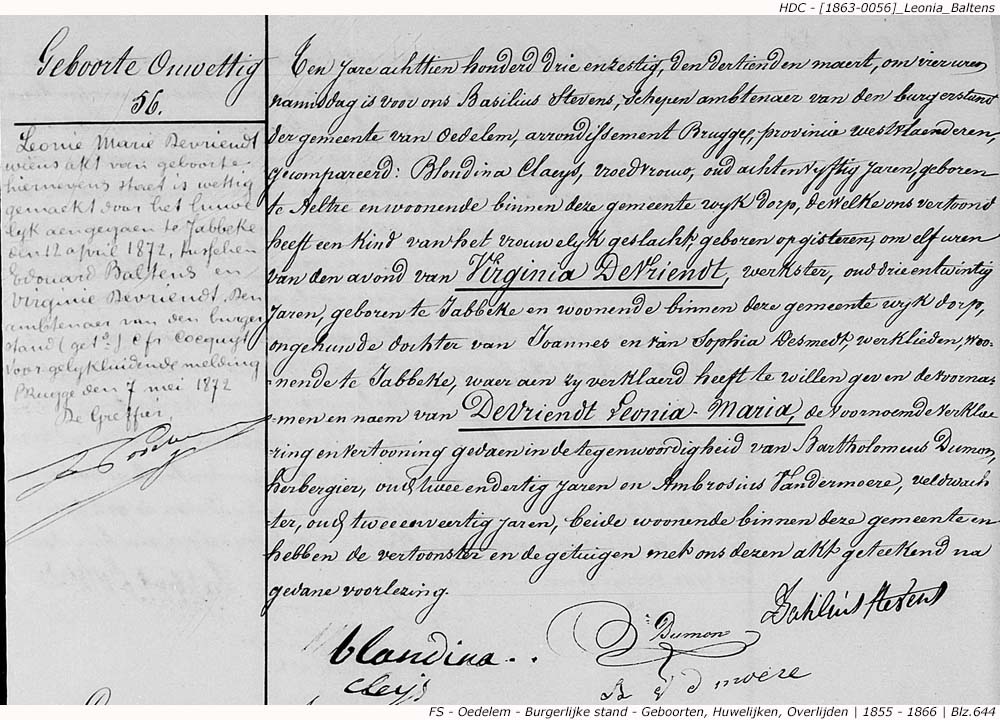 HDC - [1863-0056]_Leonia_Baltens
Geboorte Onwettig
56.
Leonie Marie Devriendt
wiens akt van geboorte
hiernevens staet is wettig
gemaekt door het huwe
lyk aengegaen te Jabbeke
den 12 april 1872, tusschen
Edouard Baltens en
Virginie Devriendt. Den
ambtenaer van den burger
stand (get.d) Cocquyt
Voor gelykluidende melding
Brugge den 7 mei 1872
De Greffier
Ten jare achttien honderd drie en zestig, den dertienden maert, om vier uren
namiddag is voor ons Basilius Stevens, schepen ambtenaer van den burgerstand
der gemeente van Oedelem, arrondissement Brugge, provincie westvlaenderen,
gecompareerd: Blondina Claeys, vroedvrouw, oud acht en vyftig jaren, geboren
te Aeltre en woonende binnen deze gemeente wyk dorp, dewelke ons vertoond
heeft een kind van het vrouwelyk geslacht, geboren op gisteren, om elf uren
van den avond van Virginia DeVriendt, werkster, oud drie entwintig
jaren, geboren te Jabbeke en woonende binnen deze gemeente wyk dorp,
ongehuwde dochter van Joannes en van Sophia Desmedt, werklieden, woo-
-nende te Jabbeke, waer aen zy verklaerd heeft te willen geven de voorna-
-men en naem van DeVriendt Leonia-Maria, de voornoemde verklae-
-ring en vertooning gedaen in de tegenwoordigheid van Bartholomeus Dumon,
herbergier, oud twee en dertig jaren en Ambrosius Vandermoere, veldwach
-ter, oud twee en veertig jaren, beide woonende binnen deze gemeente en
hebben de vertoonster en de getuigen met ons dezen akt geteekend na
gedane voorlezing.
Basilius Stevens
B. Dumon
blandina
claeijs
FS - Oedelem - Burgerlijke stand - Geboorten, Huwelijken, Overlijden | 1855 - 1866 | Blz.644